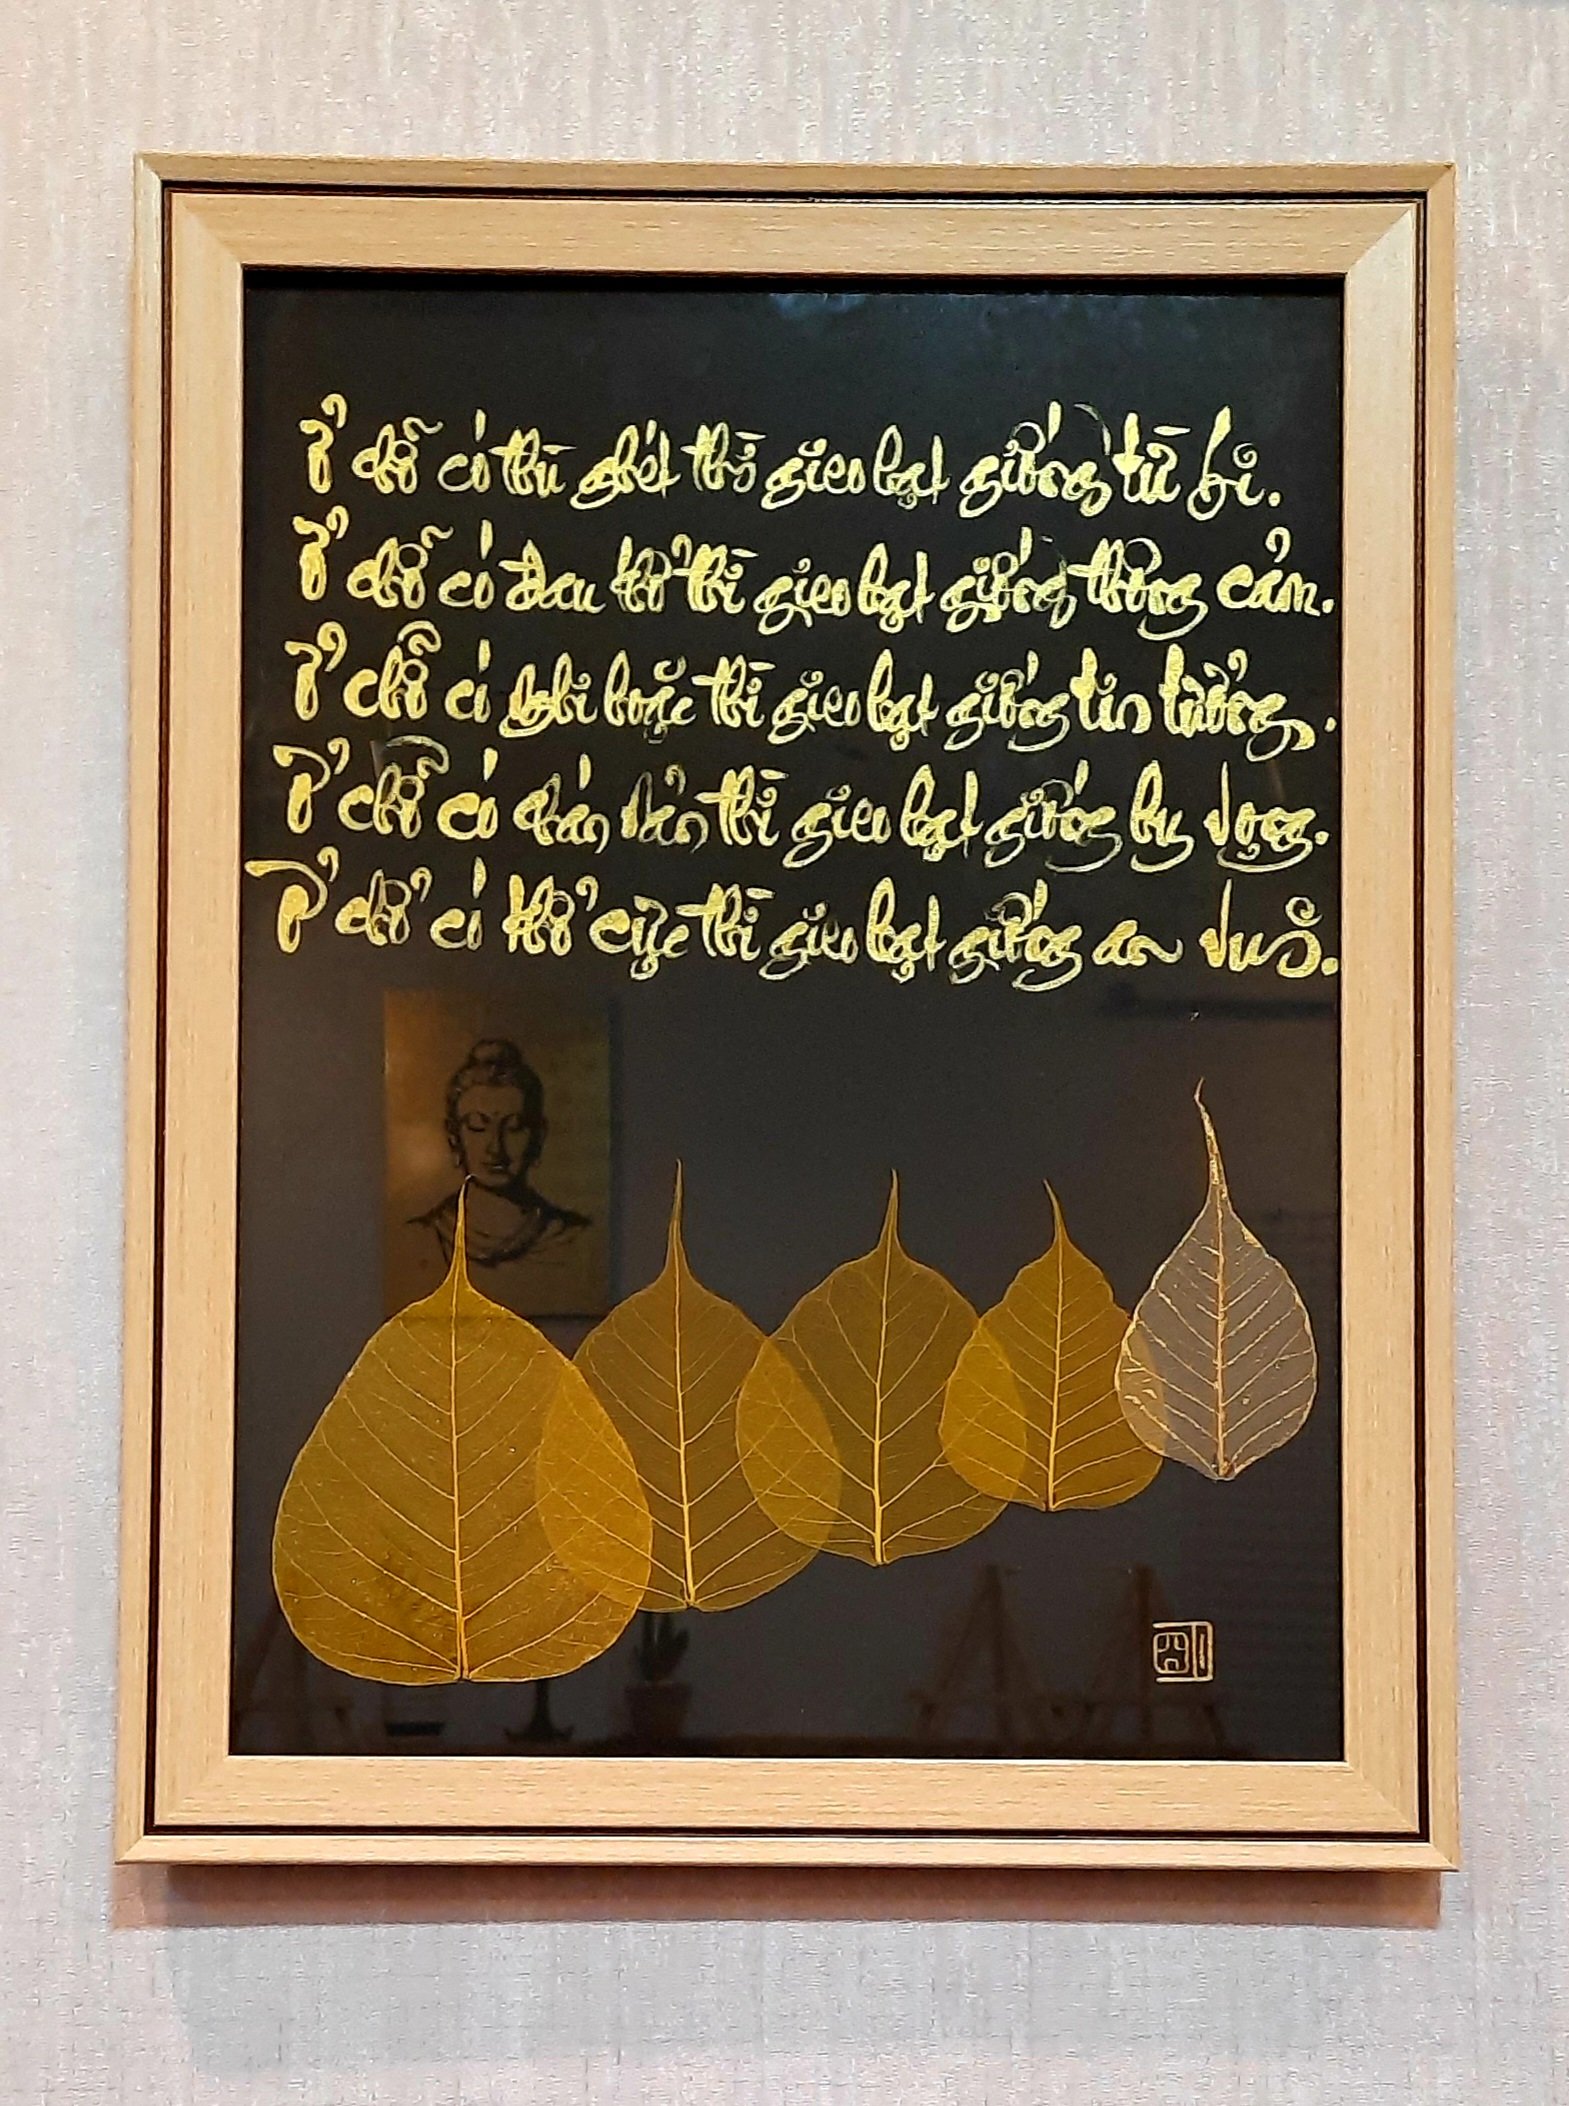 Ở chỗ có thù ghét thì gieo hạt giống từ bi.
Ở chỗ có đau khổ thì gieo hạt giống thông cảm.
Ở chỗ có nghi hoặc thì gieo hạt giống tin tưởng.
Ở chỗ có chán nản thì gieo hạt giống hy vọng.
Ở chổ có khổ cực thì gieo hạt giống an vui.